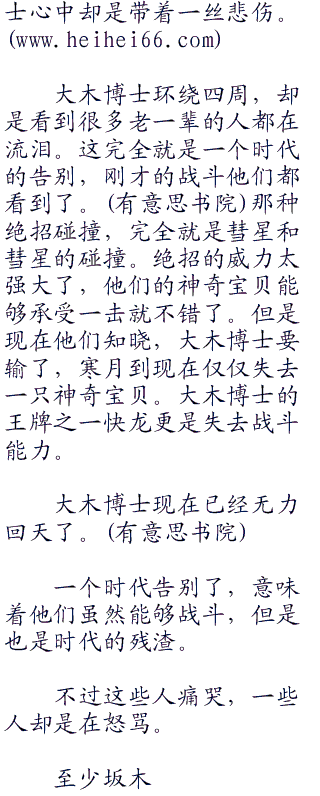 士心中却是带着一丝悲伤。
(www.heihei66.com)
大木博士环绕四周，却
是看到很多老一辈的人都在
流泪。这完全就是一个时代
的告别，刚才的战斗他们都
看到了。(有意思书院)那种
绝招碰撞，完全就是彗星和
彗星的碰撞。绝招的威力太
强大了，他们的神奇宝贝能
够承受一击就不错了。但是
现在他们知晓，大木博士要
输了，寒月到现在仅仅失去
一只神奇宝贝。大木博士的
王牌之一快龙更是失去战斗
能力。
大木博士现在已经无力
回天了。(有意思书院)
一个时代告别了，意味
着他们虽然能够战斗，但是
也是时代的残渣。
不过这些人痛哭，一些
人却是在怒骂。
至少坂木